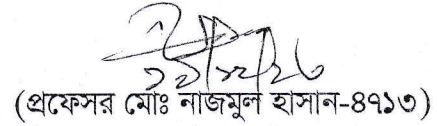 (প্রফেসর মোঃ নাজমুল হাসান-৪৭১৩)